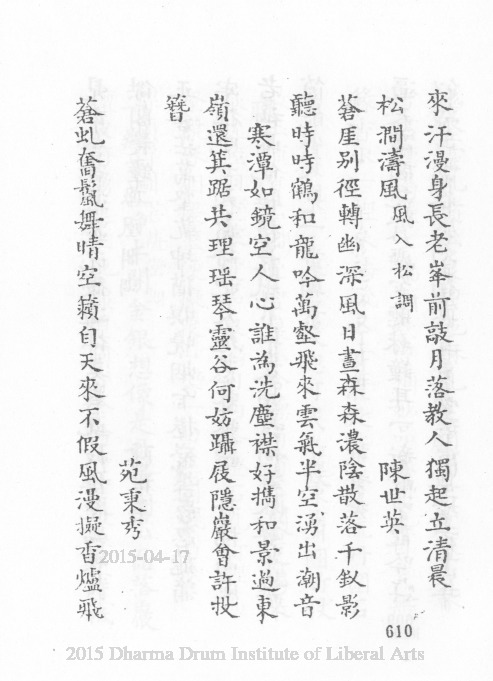 來汗漫身長老峯前敲月落教人獨起立清晨
松澗濤風 風入松調 陳世英
蒼厓別徑轉幽深風日晝森森濃陰散落千釵影
聽時時鶴和龍吟萬壑飛來雲氣半空湧出潮音
寒潭如鏡空人心誰為洗塵襟好攜和景過東
嶺還箕踞共理瑶琴靈谷何妨躡屐隱巖會許投
簪
苑秉秀
蒼虬奮鬣舞晴空籟自天來不假風漫擬香爐飛
610
2015-04-17
2015 Dharma Drum Institute of Liberal Arts